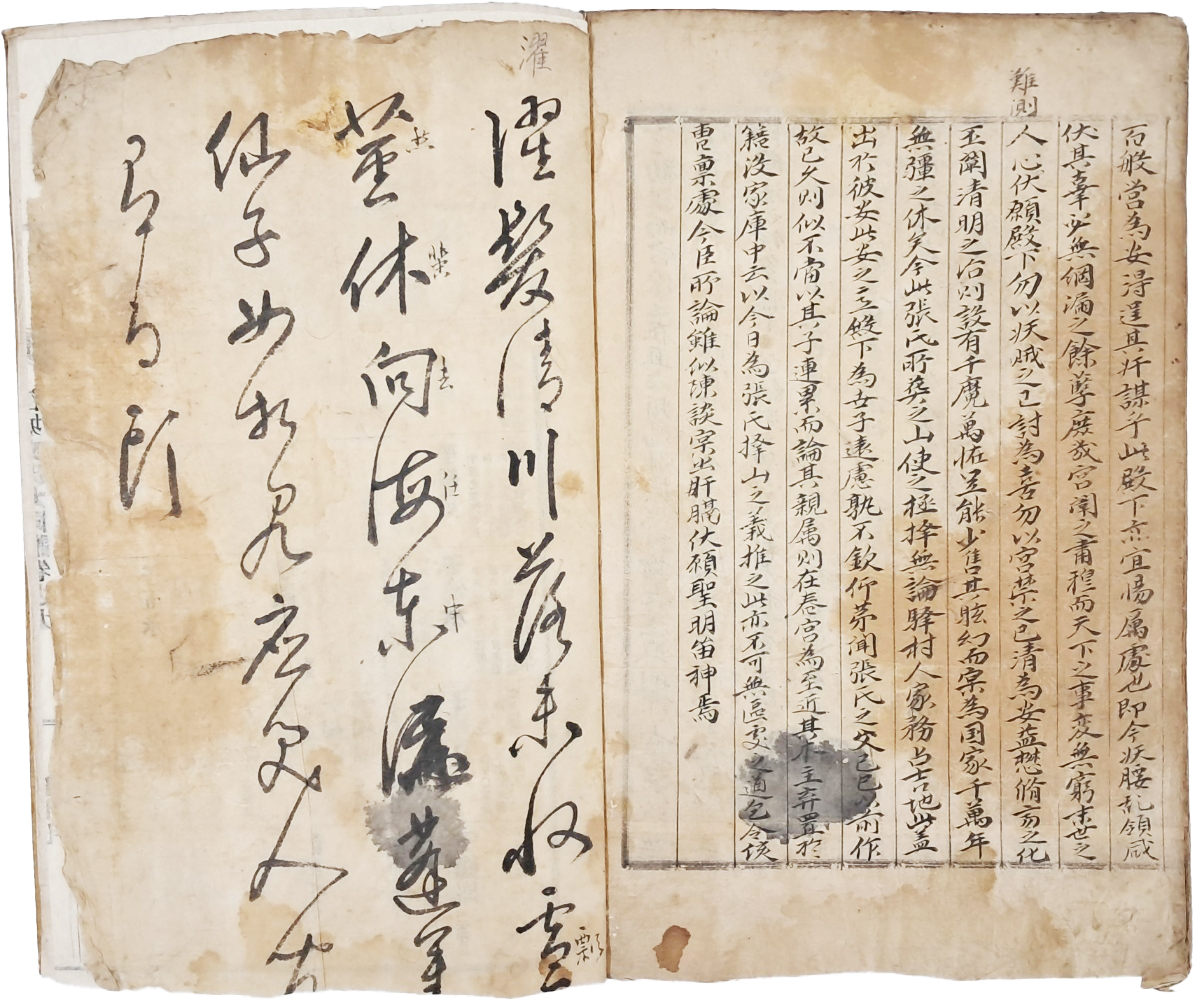 難測
百般營為安得逞其奸謀乎此殿下亦宜惕厲處也即今妖腰乱領咸
伏其辜必無網漏之餘孽庶幾宮闈之肅穆而天下之事变無窮末世之
人心伏願殿下勿以妖賊之已討為喜勿以宮禁之已清為安益懋脩齊之化
丕闡清明之治則設有千魔萬恠豈能少售其眩幻而宲為国家千萬年
無彊之休矣今此張氏所葬之山使之極擇無論驛村人家務占吉地此盖
出於彼安此安之意殿下為世子遠慮孰不欽仰苐聞張氏之父己巳以前作
故已久則似不當以其子連累而論其親属則在春宮為至近其木主弃置於
籍没家庫中云以今日為張氏擇山之義推之此亦不可無區處之道乞令該
曹稟處今臣所論雖似陳談宲出肝膈伏願聖明留神焉
濯
濯髮清川落未收雲
飄
茎休向海東流蓬莱
仙子如相見應笑人
間有白頭